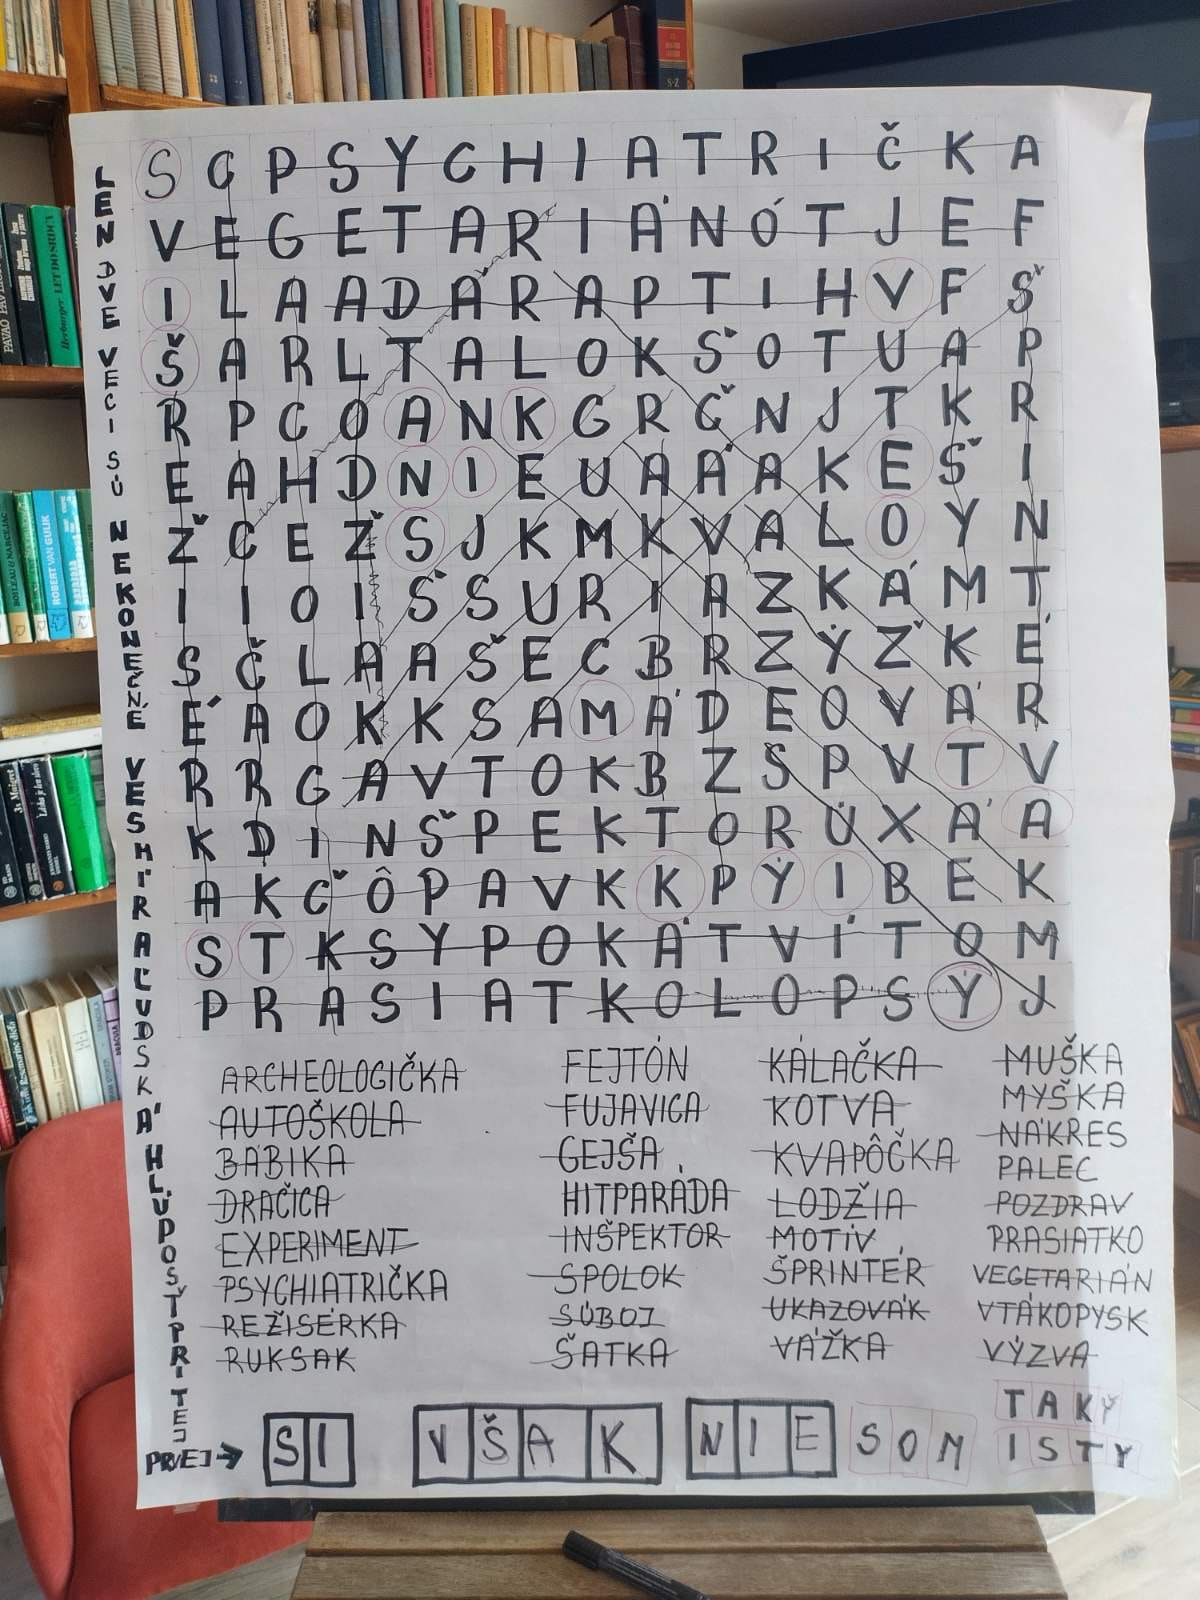 LEN DVE VECI SÚ NEKONEČNÉ VESMÍR A ĽUDSKÁ HLÚPOSŤ PRI TEJ
PRVEJ →
S G P S Y C H I A T R I Č K A
V E G E T A R I Á N Ó T J E F
I L A A D Á R A P T I H V F Š
Š A R L T A L O K Š O T U A P
R P C O A N K G R Č N J T K R
E A H D N I E U A Á A K E Š I
Ž C E Ž S J K M K V A L O Y N
I I O I Š S U R I A Z K Á M T
S Č L A A Š E C B R Z Ý Ž K É
É A O K K S A M Á D E O V Á R
R R G A V T O K B Z S P V T V
K D I N Š P E K T O R Ú X Á A
A K Č Ô P A V K K P Ý I B E K
S T K S Y P O K Á T V Í T O M
P R A S I A T K O L O P S Ý J
ARCHEOLOGIČKA
AUTOŠKOLA
BÁBIKA
DRAČICA
EXPERIMENT
PSYCHIATRIČKA
REŽISÉRKA
RUKSAK
FEJTÓN
FUJAVICA
GEJŠA
HITPARÁDA
INŠPEKTOR
SPOLOK
SÚBOJ
ŠATKA
KÁLAČKA
KOTVA
KVAPÔČKA
LODŽIA
MOTÍV
ŠPRINTÉR
UKAZOVÁK
VÁŽKA
MUŠKA
MYŠKA
NÁKRES
PALEC
POZDRAV
PRASIATKO
VEGETARIÁN
VTÁKOPYSK
VÝZVA
SI VŠAK NIE SOM
TAKÝ
ISTÝ